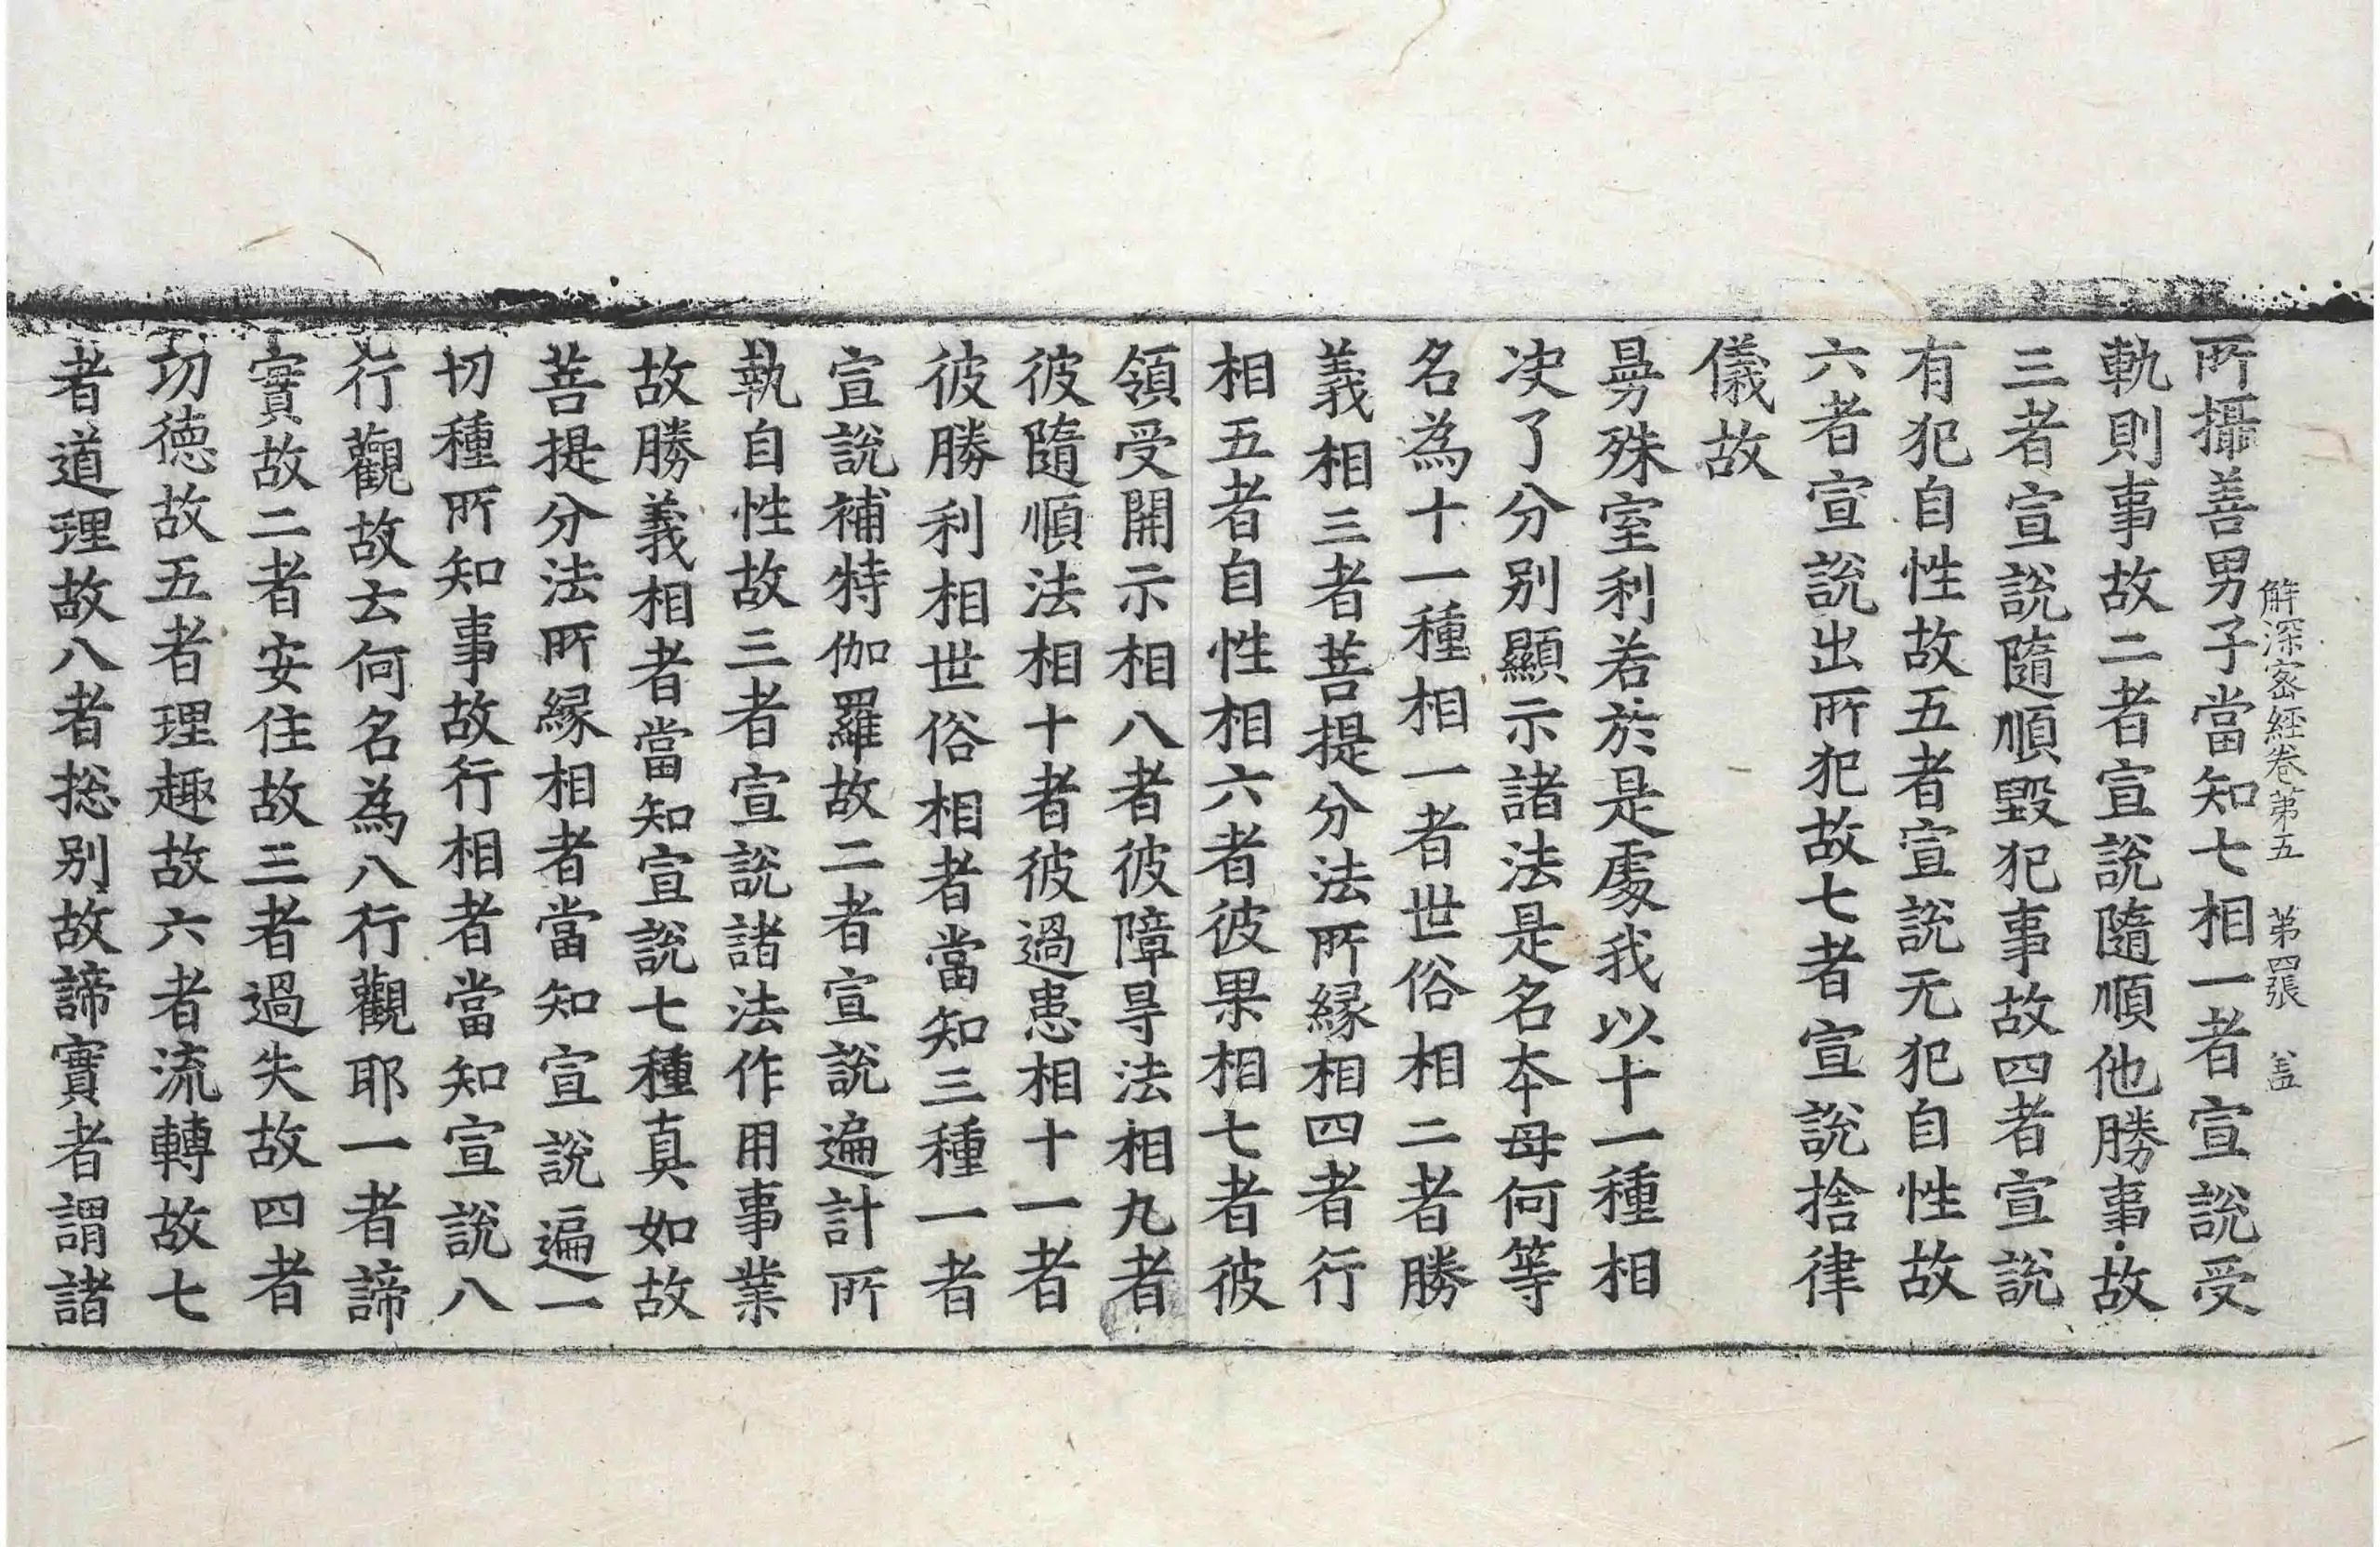 解深密經卷第五 第四張 盖
所攝善男子當知七相一者宣說受
軌則事故二者宣說隨順他勝事故
三者宣說隨順毀犯事故四者宣說
有犯自性故五者宣說无犯自性故
六者宣說出所犯故七者宣說捨律
儀故
曼殊室利若於是處我以十一種相
决了分別顯示諸法是名本母何等
名為十一種相一者世俗相二者勝
義相三者菩提分法所縁相四者行
相五者自性相六者彼果相七者彼
領受開示相八者彼障㝵法相九者
彼隨順法相十者彼過患相十一者
彼勝利相世俗相者當知三種一者
宣說補特伽羅故二者宣說遍計所
執自性故三者宣說諸法作用事業
故勝義相者當知宣說七種真如故
菩提分法所縁相者當知宣說遍一
切種所知事故行相者當知宣說八
行觀故云何名為八行觀耶一者諦
實故二者安住故三者過失故四者
功德故五者理趣故六者流轉故七
者道理故八者揔別故諦實者謂諸